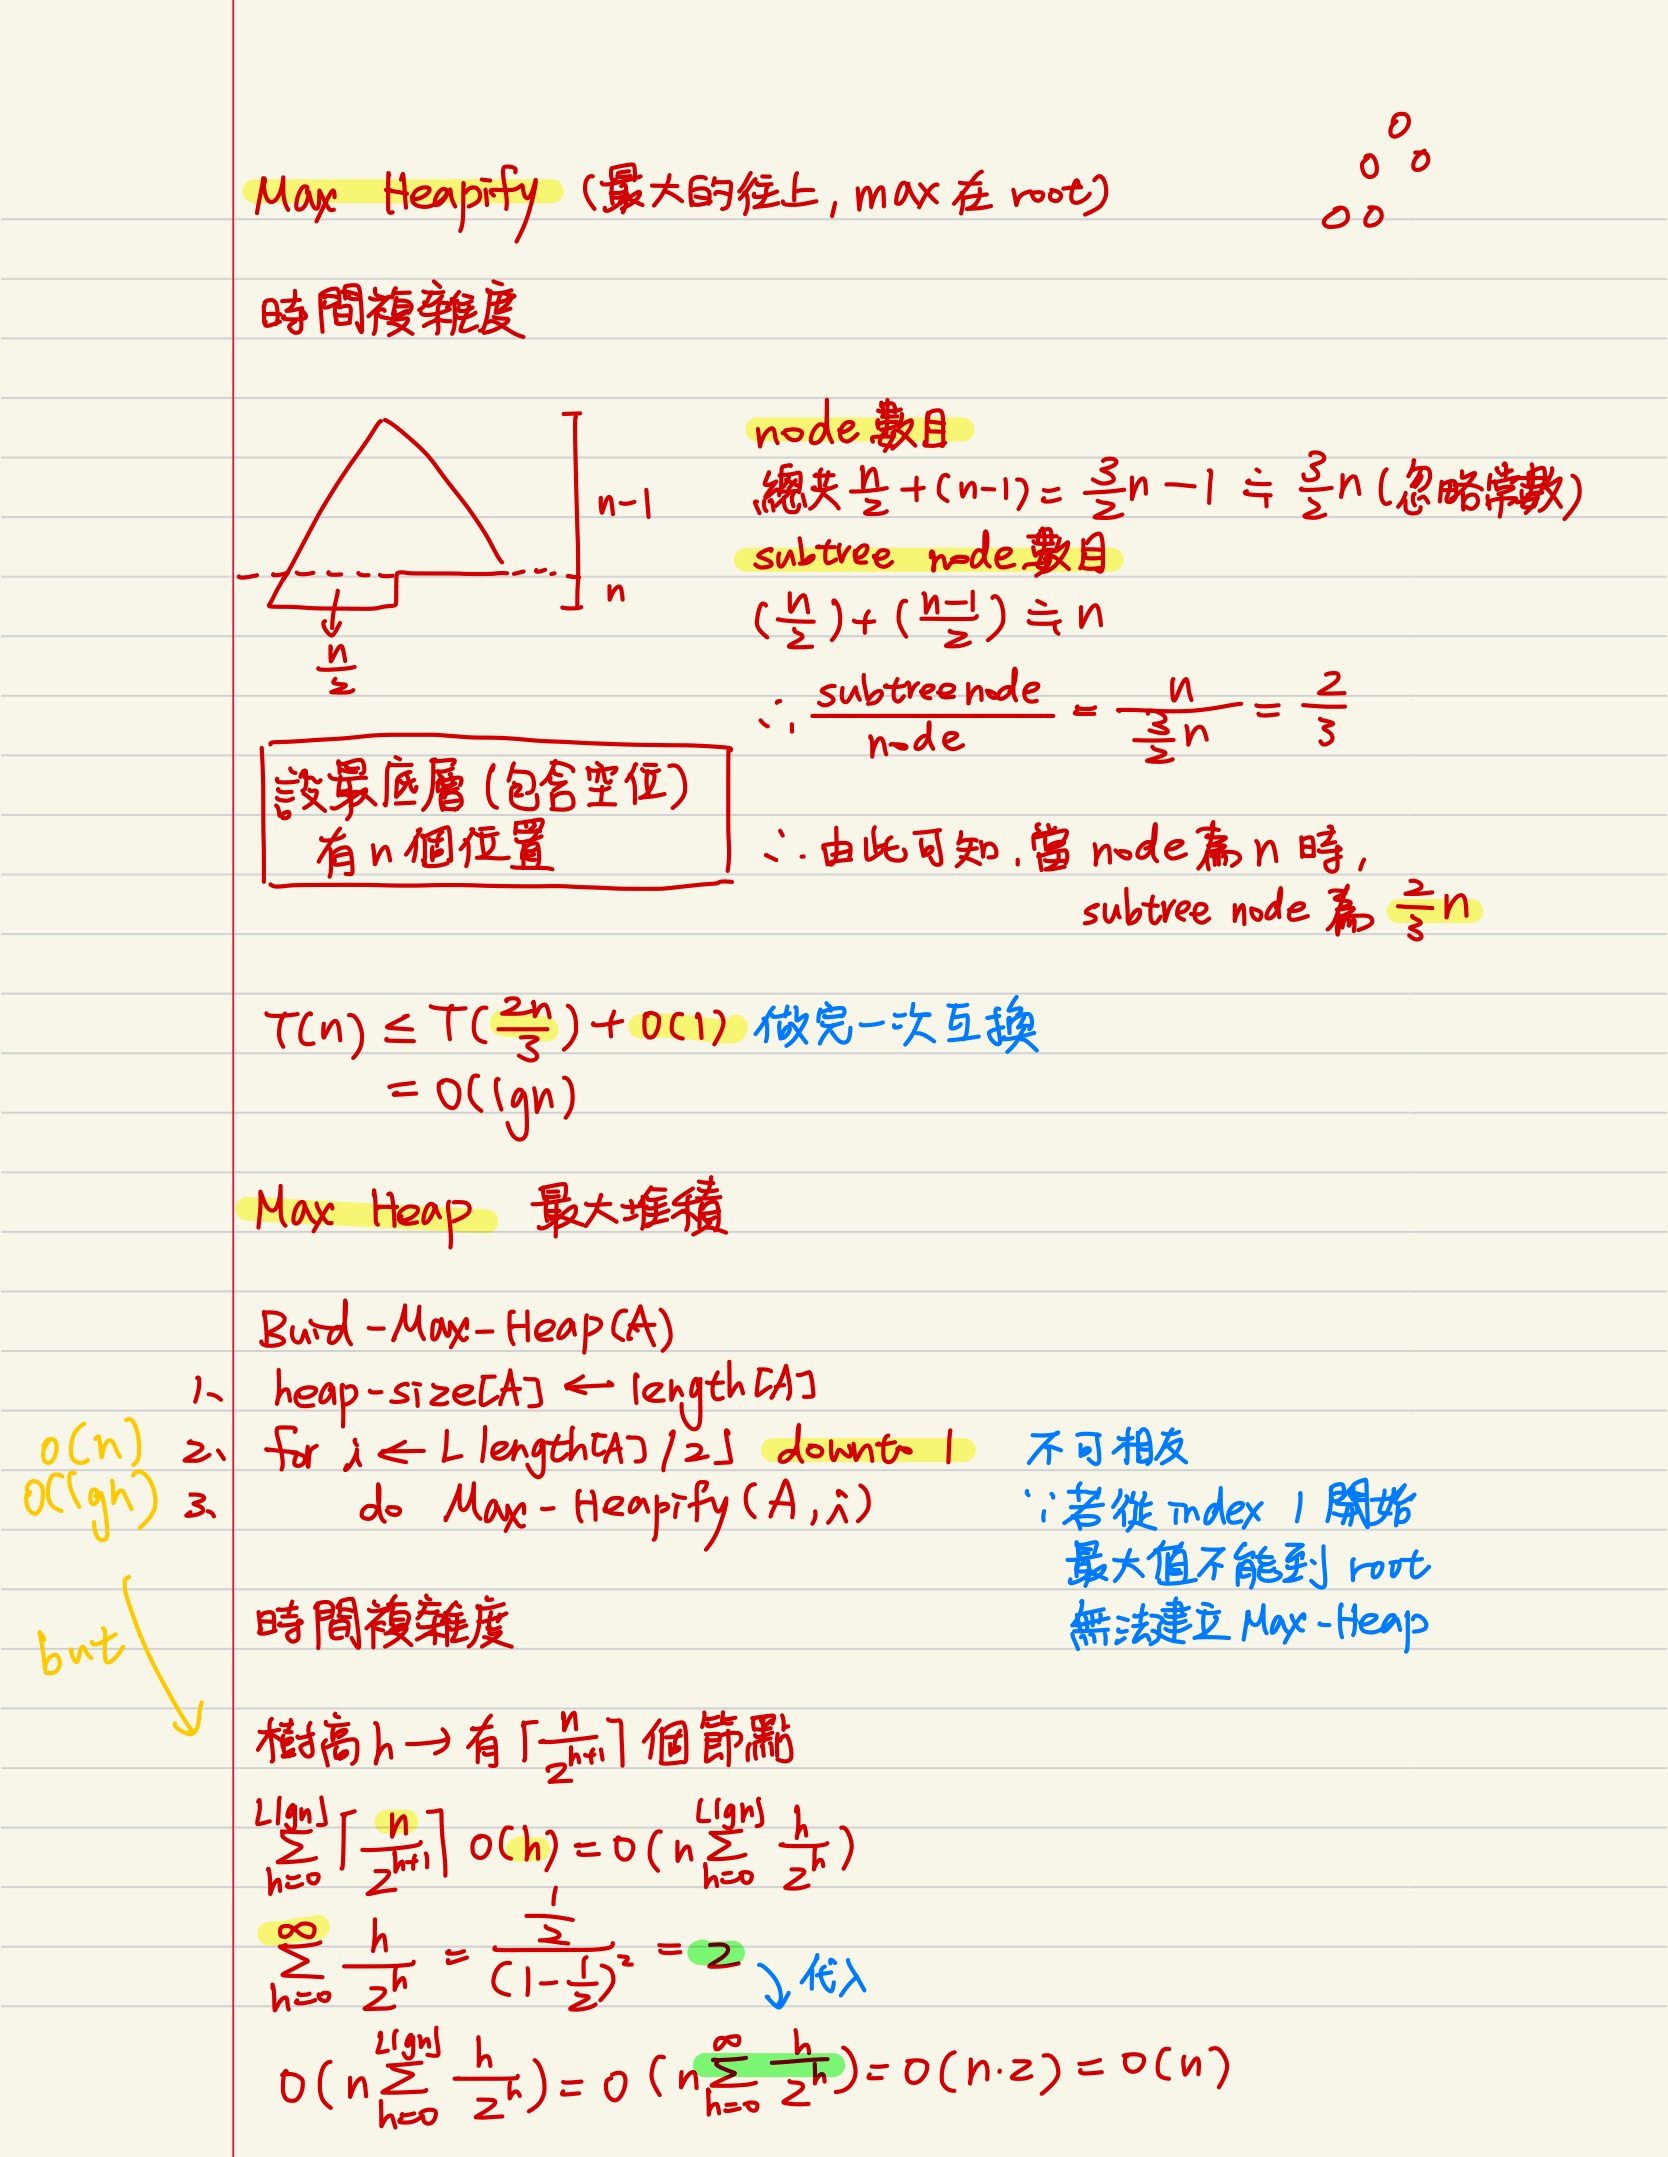 Max Heapify (最大的往上, max 在 root)
時間複雜度
n-1
n
n/2
設最底層 (包含空位)
有 n 個位置
node 數目
總共 n/2 + (n-1) = 3/2 n - 1 ≒ 3/2 n (忽略常數)
subtree node 數目
(n/2) + (n-1/2) ≒ n
∴ subtree node / node = n / (3/2 n) = 2/3
∴ 由此可知, 當 node 為 n 時,
subtree node 為 2/3 n
T(n) ≤ T(2n/3) + O(1) 做完一次互換
= O(lgn)
Max Heap 最大堆積
Buid-Max-Heap(A)
1、 heap-size[A] ← length[A]
O(n) 2、 for i ← ⌊length[A]/2⌋ downto 1 不可相反
O(lgn) 3、 do Max-Heapify(A, i) ∵若從 index 1 開始
最大值不能到 root
無法建立 Max-Heap
but
時間複雜度
樹高 h → 有 ⌈n/2^(h+1)⌉ 個節點
∑_{h=0}^{⌊lgn⌋} ⌈n/2^(h+1)⌉ O(h) = O(n ∑_{h=0}^{⌊lgn⌋} h/2^h)
∑_{h=0}^{∞} h/2^h = (1/2) / (1-1/2)^2 = 2 代入
O(n ∑_{h=0}^{⌊lgn⌋} h/2^h) = O(n ∑_{h=0}^{∞} h/2^h) = O(n·2) = O(n)